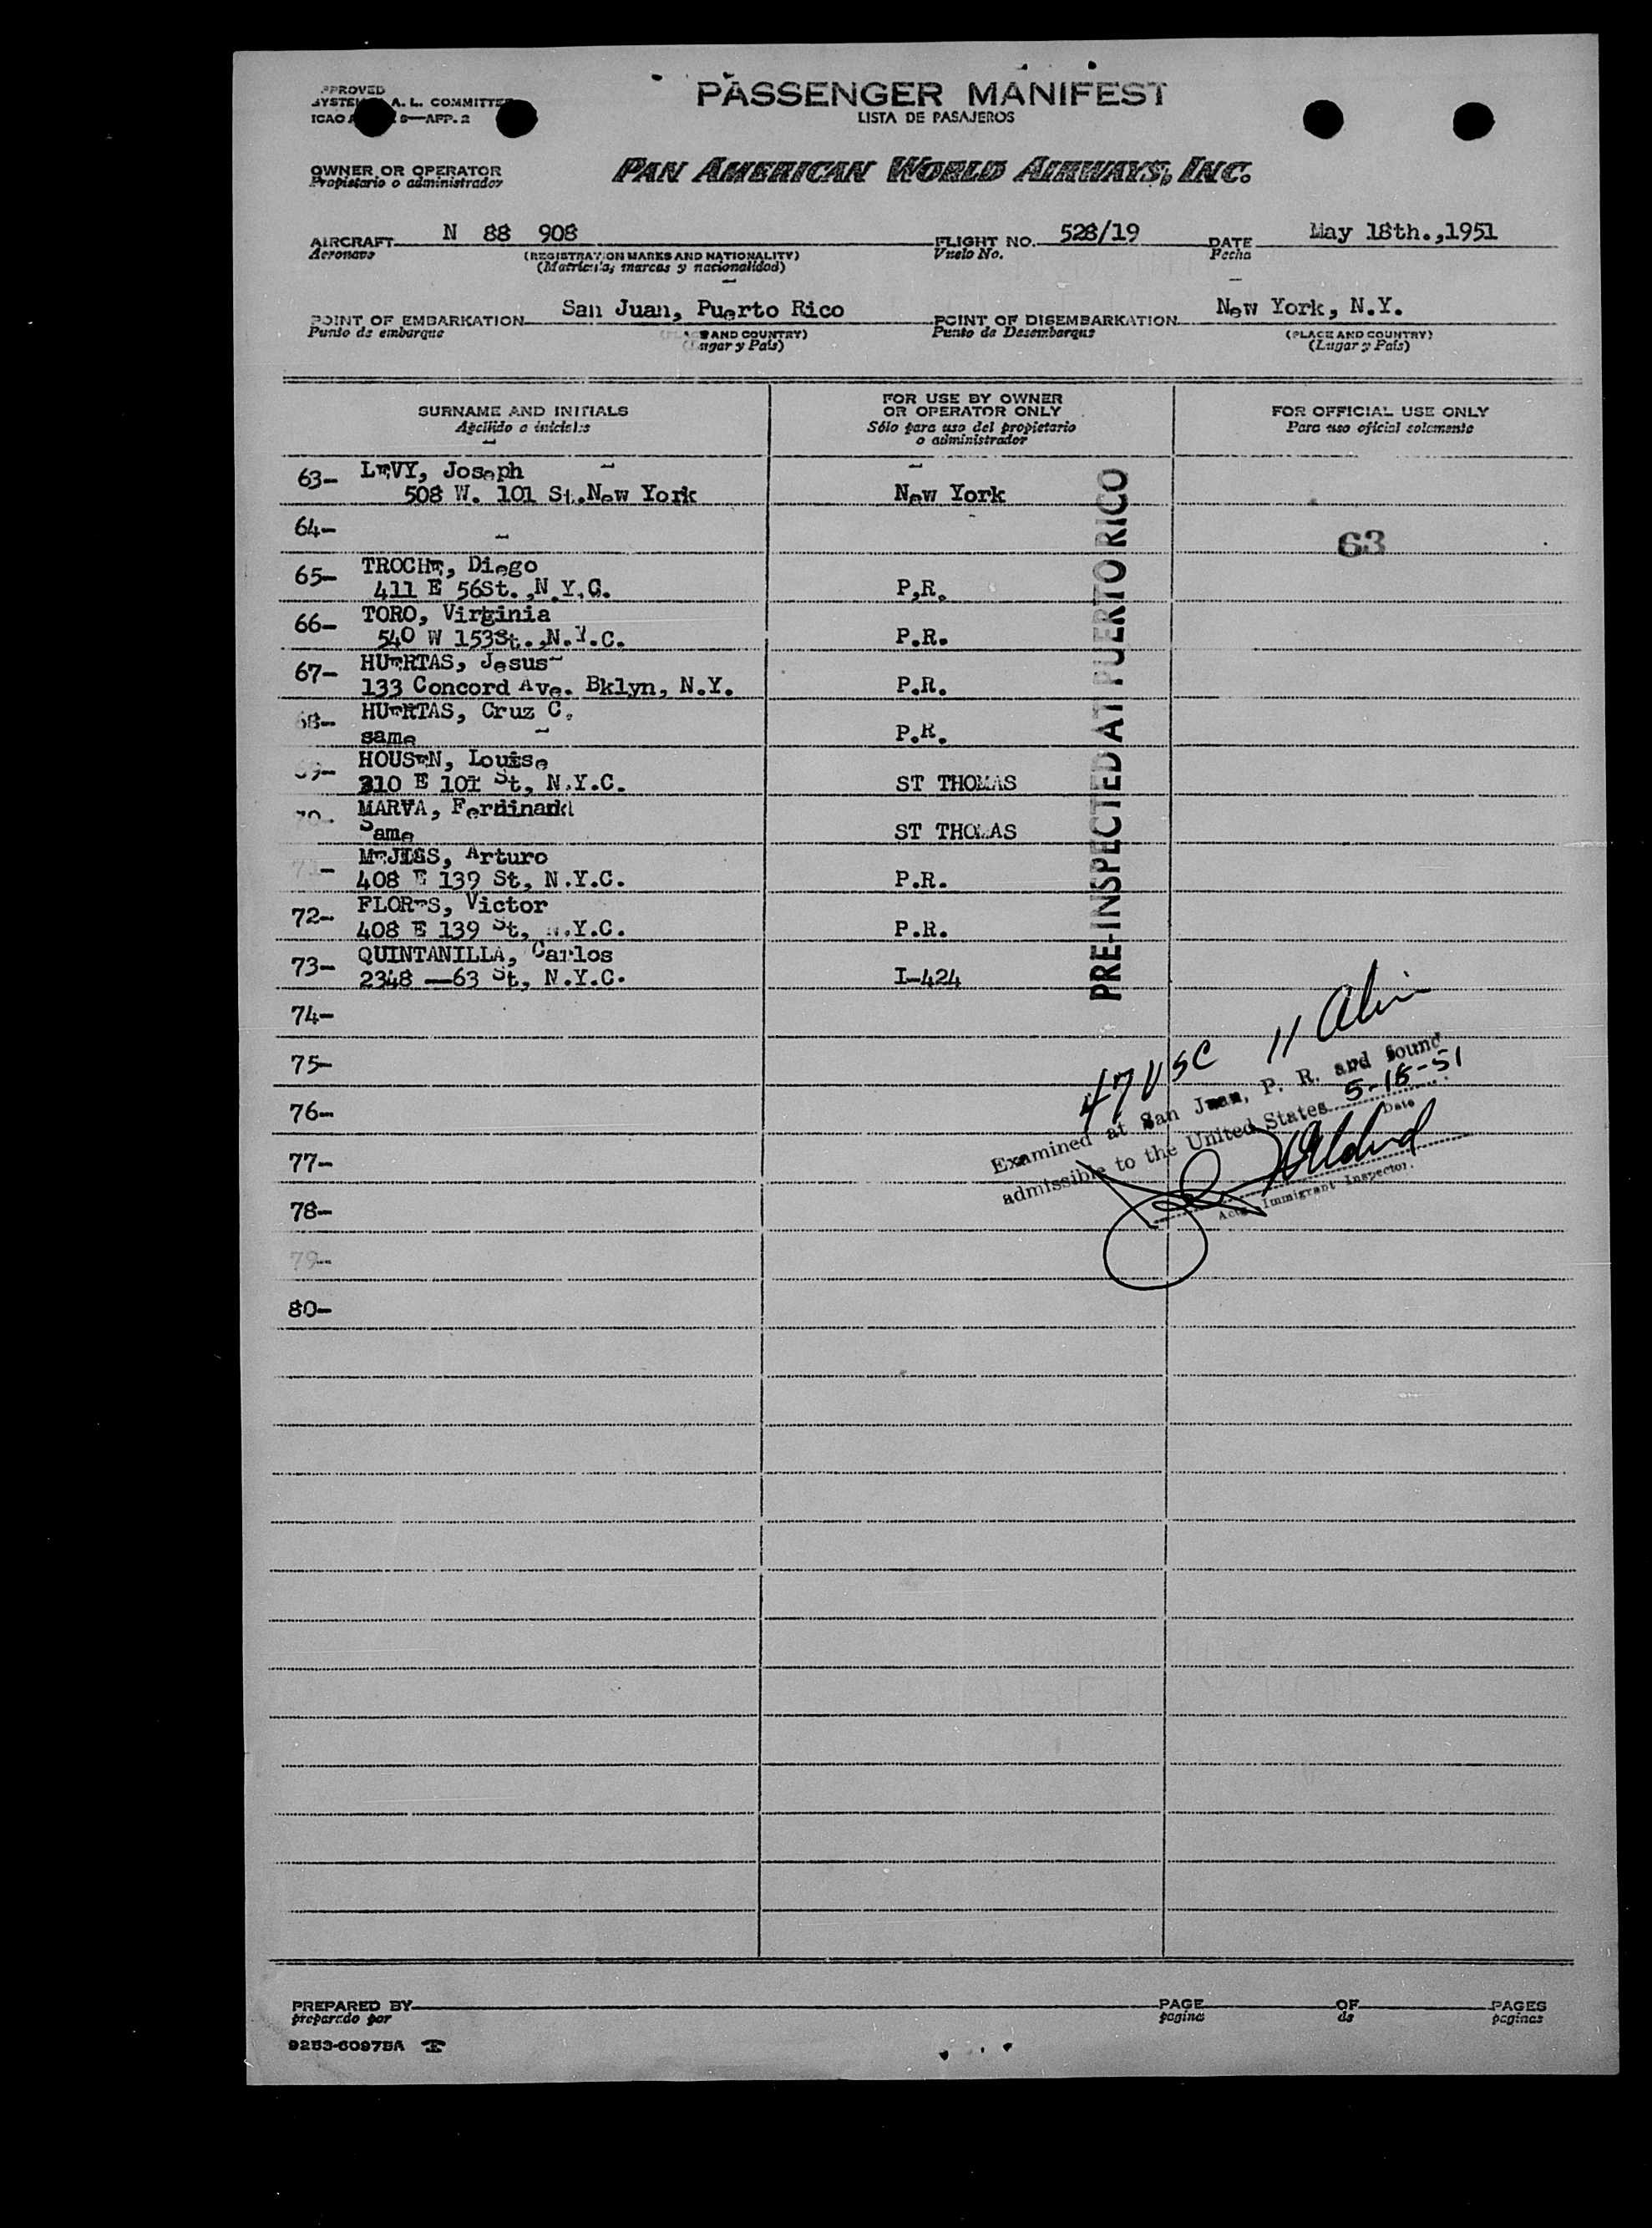 PASSENGER MANIFEST
LISTA DE PASAJEROS
A. L. COMMITTEE
ICAO
APP. 2
OWNER OR OPERATOR
Propietario o administrador
PAN AMERICAN WORLD AIRWAYS, INC.
AIRCRAFT N 88 908 FLIGHT NO. 528/19 DATE May 18th.,1951
Aeronave (REGISTRATION MARKS AND NATIONALITY) Vuelo No. Fecha
(Matricula, marcas y nacionalidad)
POINT OF EMBARKATION San Juan, Puerto Rico POINT OF DISEMBARKATION New York, N.Y.
Punto de embarque AND COUNTRY) Punto de Desembarque (PLACE AND COUNTRY)
(Lugar y País) (Lugar y País)
SURNAME AND INITIALS
Apellido e iniciales
FOR USE BY OWNER
OR OPERATOR ONLY
Sólo para uso del propietario
o administrador
FOR OFFICIAL USE ONLY
Para uso oficial solamente
63- LEVY, Joseph
508 W. 101 St.New York New York
64-
63
65- TROCHE, Diego
411 E 56St.,N.Y.C. P.R.
66- TORO, Virginia
540 W 153St.,N.Y.C. P.R.
67- HUERTAS, Jesus
133 Concord Ave. Bklyn, N.Y. P.R.
68- HUERTAS, Cruz C.
same P.R.
69- HOUSEN, Louise
310 E 101 St, N.Y.C. ST THOMAS
70- MARVA, Ferdinand
Same ST THOMAS
71- Arturo
408 E 139 St, N.Y.C. P.R.
72- FLORES, Victor
408 E 139 St, N.Y.C. P.R.
73- QUINTANILLA, Carlos
2348 —63 St, N.Y.C. I-424
PRE-INSPECTED AT PUERTO RICO
74-
75-
76-
77-
78-
79-
80-
47 USC 11 Alien
Examined at San Juan, P. R. and found
admissible to the United States 5-18-51
Date
Immigrant Inspector.
PREPARED BY PAGE OF PAGES
preparado por pagina de paginas
9253-60975A